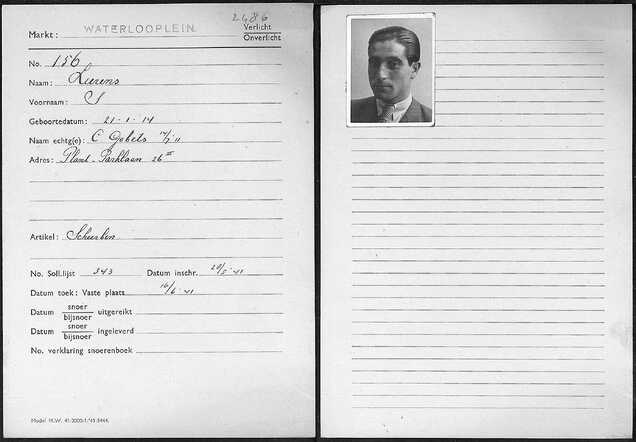 2486
Markt: WATERLOOPLEIN. Verlicht
Onverlicht
No. 156
Naam: Lurens
Voornaam: S
Geboortedatum: 21-1-14
Naam echtg(e): C Gobets 14/7 11
Adres: Plant. Parklaan 26 III
Artikel:
No. Soll.lijst 343 Datum inschr. 20/5-41
Datum toek: Vaste plaats 16/6-41
Datum snoer
bijsnoer uitgereikt
Datum snoer
bijsnoer ingeleverd
No. verklaring snoerenboek
Model M.W. 41-3000-1-'41-5444.